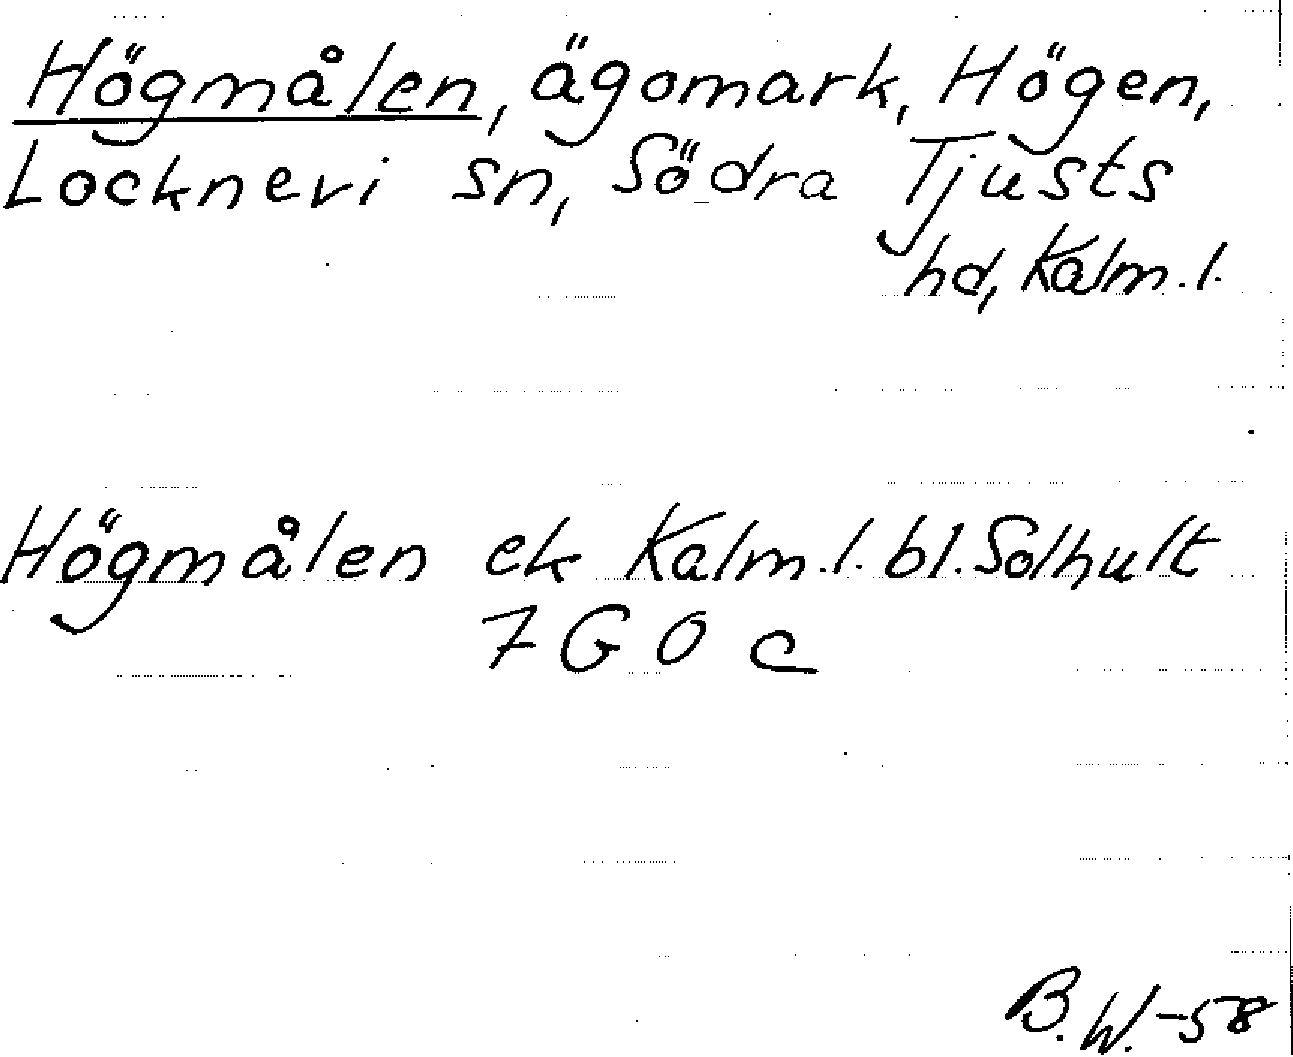 Högmålen, ägomark, Högen,
Locknevi sn, Södra Tjusts
hd, Kalm. l.
Högmålen ek Kalm. l. bl. Solhult
7 G 0 c
B. W. -58